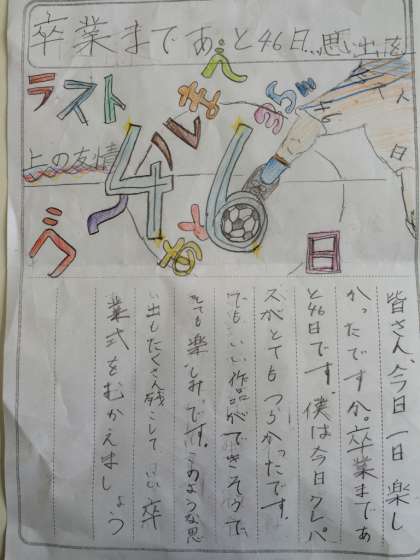 卒業まであと46日…思い出を
ラスト
まで
上の友情
あと
46
日
皆さん、今日一日楽し
かったですか。卒業まであ
と46日です。僕は今日クレパ
スがとてもつらかったです。
でも、いい作品ができそうで、
とても楽しみです。このような思
い出もたくさん残こして いい卒
業式をむかえましょう